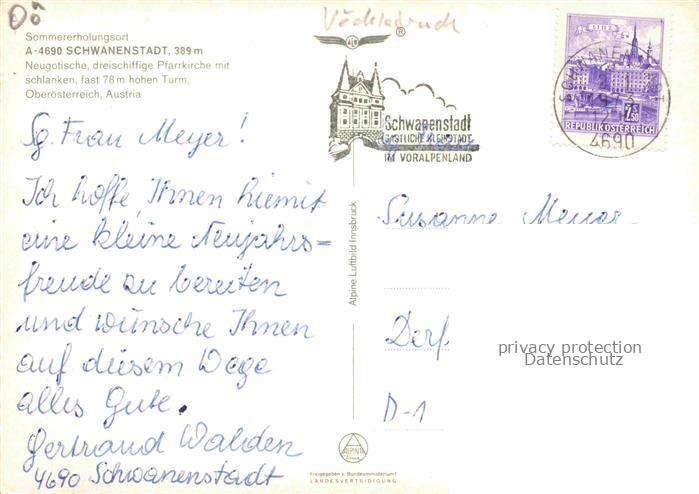 OÖ
Vöcklabruck
Sommererholungsort
A-4690 SCHWANENSTADT, 389 m
Neugotische, dreischiffige Pfarrkirche mit
schlanken, fast 78 m hohen Turm,
Oberösterreich, Austria
Sg. Frau Meyer!
Ich hoffe Ihnen hiemit
eine kleine Neujahrs=
freude zu bereiten
und wünsche Ihnen
auf diesem Wege
alles Gute.
Gertraud Walden
4690 Schwanenstadt
®
Schwanenstadt
GASTLICHE KLEINSTADT
IM VORALPENLAND
LINZ
S 2.50
REPUBLIK ÖSTERREICH
4690
Alpine Luftbild Innsbruck
Susanne
Dorf
D-1
privacy protection
Datenschutz
ALPINE
Freigegeben v. Bundesministerium f.
LANDESVERTEIDIGUNG